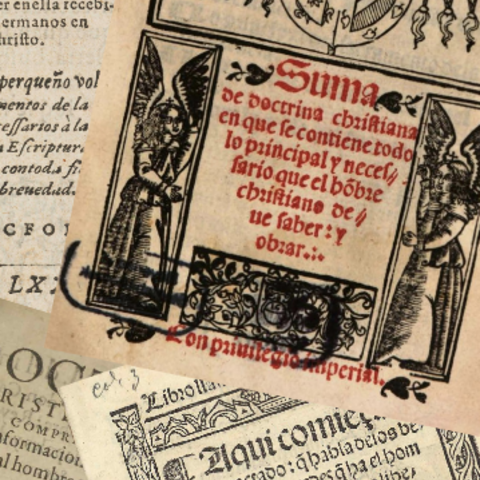 er en ella recebi-
ermanos en
hristo.
perqueño vol
mentos de la
cessarios à la
a Escriptura
contoda fi
breuedad.
CFOR
LXX
Suma
de doctrina christiana
en que se contiene todo
lo principal y neces//
sario que el hõbre
christiano de//
ue saber: y
obrar.:.
Con priuilegio imperial.
DOCT
RISTI
COMPR
nformacion
al hombre
Libro lla
Aqui comiẽ
cado: q̃ habla de los be
des q̃ ha el hom